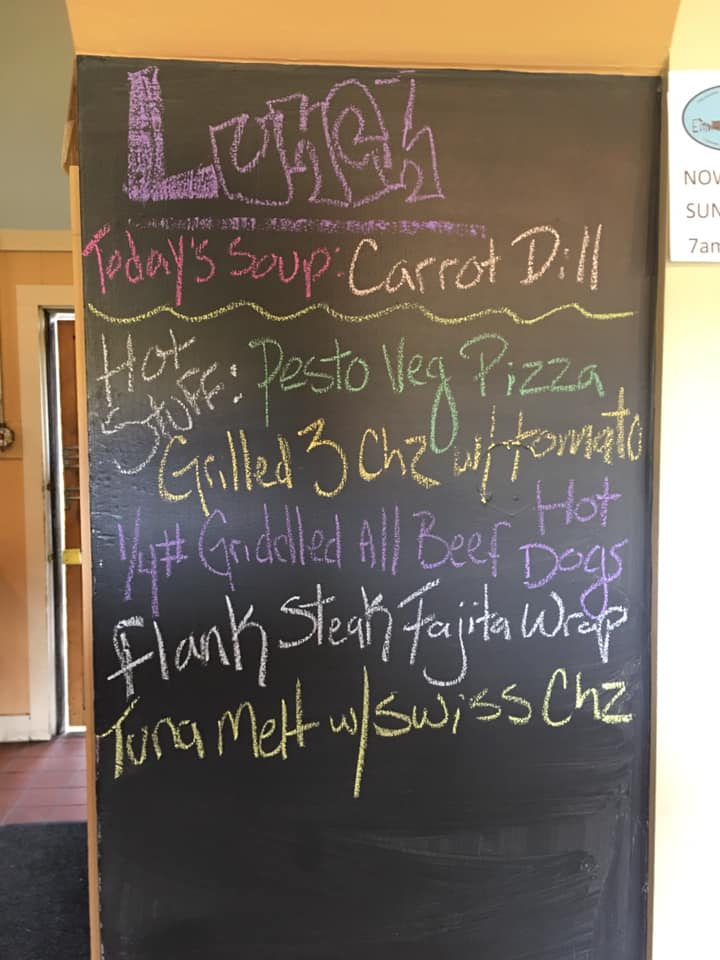 Lunch
Today's Soup: Carrot Dill
Hot Stuff: Pesto Veg Pizza
Grilled 3 Chz w/tomato
1/4# Griddled All Beef Hot Dogs
Flank Steak Fajita Wrap
Tuna Melt w/Swiss Chz
NOW
SUN
7am